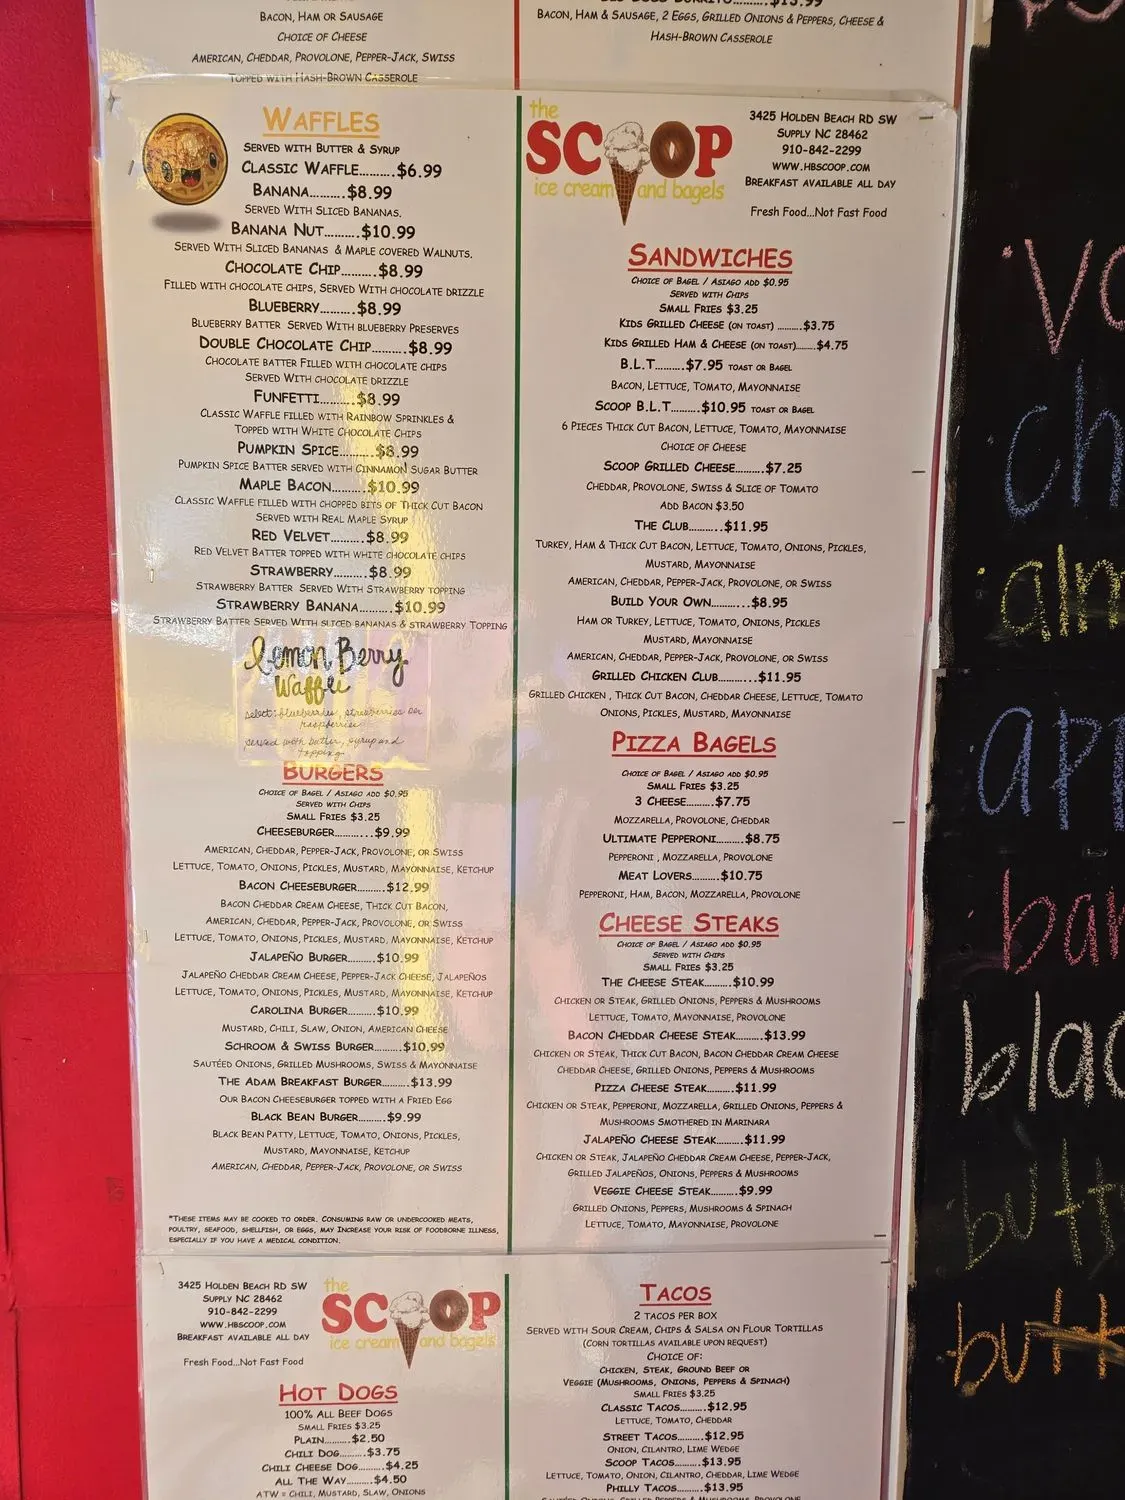 BACON, HAM OR SAUSAGE
CHOICE OF CHEESE
AMERICAN, CHEDDAR, PROVOLONE, PEPPER-JACK, SWISS
TOPPED WITH HASH-BROWN CASSEROLE
BACON, HAM & SAUSAGE, 2 EGGS, GRILLED ONIONS & PEPPERS, CHEESE &
HASH-BROWN CASSEROLE
WAFFLES
SERVED WITH BUTTER & SYRUP
CLASSIC WAFFLE..........$6.99
BANANA.........$8.99
SERVED WITH SLICED BANANAS.
BANANA NUT..........$10.99
SERVED WITH SLICED BANANAS & MAPLE COVERED WALNUTS.
CHOCOLATE CHIP..........$8.99
FILLED WITH CHOCOLATE CHIPS, SERVED WITH CHOCOLATE DRIZZLE
BLUEBERRY..........$8.99
BLUEBERRY BATTER SERVED WITH BLUEBERRY PRESERVES
DOUBLE CHOCOLATE CHIP..........$8.99
CHOCOLATE BATTER FILLED WITH CHOCOLATE CHIPS
SERVED WITH CHOCOLATE DRIZZLE
FUNFETTI..........$8.99
CLASSIC WAFFLE FILLED WITH RAINBOW SPRINKLES &
TOPPED WITH WHITE CHOCOLATE CHIPS
PUMPKIN SPICE..........$8.99
PUMPKIN SPICE BATTER SERVED WITH CINNAMON SUGAR BUTTER
MAPLE BACON..........$10.99
CLASSIC WAFFLE FILLED WITH CHOPPED BITS OF THICK CUT BACON
SERVED WITH REAL MAPLE SYRUP
RED VELVET..........$8.99
RED VELVET BATTER TOPPED WITH WHITE CHOCOLATE CHIPS
STRAWBERRY..........$8.99
STRAWBERRY BATTER SERVED WITH STRAWBERRY TOPPING
STRAWBERRY BANANA..........$10.99
STRAWBERRY BATTER SERVED WITH SLICED BANANAS & STRAWBERRY TOPPING
Lemon Berry
Waffle
select: blueberries, strawberries or
raspberries
served with butter, syrup and
topping
BURGERS
CHOICE OF BAGEL / ASIAGO ADD $0.95
SERVED WITH CHIPS
SMALL FRIES $3.25
CHEESEBURGER...........$9.99
AMERICAN, CHEDDAR, PEPPER-JACK, PROVOLONE, OR SWISS
LETTUCE, TOMATO, ONIONS, PICKLES, MUSTARD, MAYONNAISE, KETCHUP
BACON CHEESEBURGER..........$12.99
BACON CHEDDAR CREAM CHEESE, THICK CUT BACON,
AMERICAN, CHEDDAR, PEPPER-JACK, PROVOLONE, OR SWISS
LETTUCE, TOMATO, ONIONS, PICKLES, MUSTARD, MAYONNAISE, KETCHUP
JALAPEÑO BURGER..........$10.99
JALAPEÑO CHEDDAR CREAM CHEESE, PEPPER-JACK CHEESE, JALAPEÑOS
LETTUCE, TOMATO, ONIONS, PICKLES, MUSTARD, MAYONNAISE, KETCHUP
CAROLINA BURGER..........$10.99
MUSTARD, CHILI, SLAW, ONION, AMERICAN CHEESE
SCHROOM & SWISS BURGER..........$10.99
SAUTÉED ONIONS, GRILLED MUSHROOMS, SWISS & MAYONNAISE
THE ADAM BREAKFAST BURGER..........$13.99
OUR BACON CHEESEBURGER TOPPED WITH A FRIED EGG
BLACK BEAN BURGER..........$9.99
BLACK BEAN PATTY, LETTUCE, TOMATO, ONIONS, PICKLES,
MUSTARD, MAYONNAISE, KETCHUP
AMERICAN, CHEDDAR, PEPPER-JACK, PROVOLONE, OR SWISS
*THESE ITEMS MAY BE COOKED TO ORDER. CONSUMING RAW OR UNDERCOOKED MEATS,
POULTRY, SEAFOOD, SHELLFISH, OR EGGS, MAY INCREASE YOUR RISK OF FOODBORNE ILLNESS,
ESPECIALLY IF YOU HAVE A MEDICAL CONDITION.
the
SCOOP
ice cream and bagels
3425 HOLDEN BEACH RD SW
SUPPLY NC 28462
910-842-2299
WWW.HBSCOOP.COM
BREAKFAST AVAILABLE ALL DAY
Fresh Food...Not Fast Food
SANDWICHES
CHOICE OF BAGEL / ASIAGO ADD $0.95
SERVED WITH CHIPS
SMALL FRIES $3.25
KIDS GRILLED CHEESE (ON TOAST) ..........$3.75
KIDS GRILLED HAM & CHEESE (ON TOAST)........$4.75
B.L.T..........$7.95 TOAST OR BAGEL
BACON, LETTUCE, TOMATO, MAYONNAISE
SCOOP B.L.T..........$10.95 TOAST OR BAGEL
6 PIECES THICK CUT BACON, LETTUCE, TOMATO, MAYONNAISE
CHOICE OF CHEESE
SCOOP GRILLED CHEESE..........$7.25
CHEDDAR, PROVOLONE, SWISS & SLICE OF TOMATO
ADD BACON $3.50
THE CLUB...........$11.95
TURKEY, HAM & THICK CUT BACON, LETTUCE, TOMATO, ONIONS, PICKLES,
MUSTARD, MAYONNAISE
AMERICAN, CHEDDAR, PEPPER-JACK, PROVOLONE, OR SWISS
BUILD YOUR OWN............$8.95
HAM OR TURKEY, LETTUCE, TOMATO, ONIONS, PICKLES
MUSTARD, MAYONNAISE
AMERICAN, CHEDDAR, PEPPER-JACK, PROVOLONE, OR SWISS
GRILLED CHICKEN CLUB............$11.95
GRILLED CHICKEN , THICK CUT BACON, CHEDDAR CHEESE, LETTUCE, TOMATO
ONIONS, PICKLES, MUSTARD, MAYONNAISE
PIZZA BAGELS
CHOICE OF BAGEL / ASIAGO ADD $0.95
SMALL FRIES $3.25
3 CHEESE..........$7.75
MOZZARELLA, PROVOLONE, CHEDDAR
ULTIMATE PEPPERONI..........$8.75
PEPPERONI , MOZZARELLA, PROVOLONE
MEAT LOVERS..........$10.75
PEPPERONI, HAM, BACON, MOZZARELLA, PROVOLONE
CHEESE STEAKS
CHOICE OF BAGEL / ASIAGO ADD $0.95
SERVED WITH CHIPS
SMALL FRIES $3.25
THE CHEESE STEAK..........$10.99
CHICKEN OR STEAK, GRILLED ONIONS, PEPPERS & MUSHROOMS
LETTUCE, TOMATO, MAYONNAISE, PROVOLONE
BACON CHEDDAR CHEESE STEAK..........$13.99
CHICKEN OR STEAK, THICK CUT BACON, BACON CHEDDAR CREAM CHEESE
CHEDDAR CHEESE, GRILLED ONIONS, PEPPERS & MUSHROOMS
PIZZA CHEESE STEAK..........$11.99
CHICKEN OR STEAK, PEPPERONI, MOZZARELLA, GRILLED ONIONS, PEPPERS &
MUSHROOMS SMOTHERED IN MARINARA
JALAPEÑO CHEESE STEAK..........$11.99
CHICKEN OR STEAK, JALAPEÑO CHEDDAR CREAM CHEESE, PEPPER-JACK,
GRILLED JALAPEÑOS, ONIONS, PEPPERS & MUSHROOMS
VEGGIE CHEESE STEAK..........$9.99
GRILLED ONIONS, PEPPERS, MUSHROOMS & SPINACH
LETTUCE, TOMATO, MAYONNAISE, PROVOLONE
3425 HOLDEN BEACH RD SW
SUPPLY NC 28462
910-842-2299
WWW.HBSCOOP.COM
BREAKFAST AVAILABLE ALL DAY
Fresh Food...Not Fast Food
the
SCOOP
ice cream and bagels
HOT DOGS
100% ALL BEEF DOGS
SMALL FRIES $3.25
PLAIN..........$2.50
CHILI DOG..........$3.75
CHILI CHEESE DOG..........$4.25
ALL THE WAY..........$4.50
ATW = CHILI, MUSTARD, SLAW, ONIONS
TACOS
2 TACOS PER BOX
SERVED WITH SOUR CREAM, CHIPS & SALSA ON FLOUR TORTILLAS
(CORN TORTILLAS AVAILABLE UPON REQUEST)
CHOICE OF:
CHICKEN, STEAK, GROUND BEEF OR
VEGGIE (MUSHROOMS, ONIONS, PEPPERS & SPINACH)
SMALL FRIES $3.25
CLASSIC TACOS..........$12.95
LETTUCE, TOMATO, CHEDDAR
STREET TACOS..........$12.95
ONION, CILANTRO, LIME WEDGE
SCOOP TACOS..........$13.95
LETTUCE, TOMATO, ONION, CILANTRO, CHEDDAR, LIME WEDGE
PHILLY TACOS..........$13.95